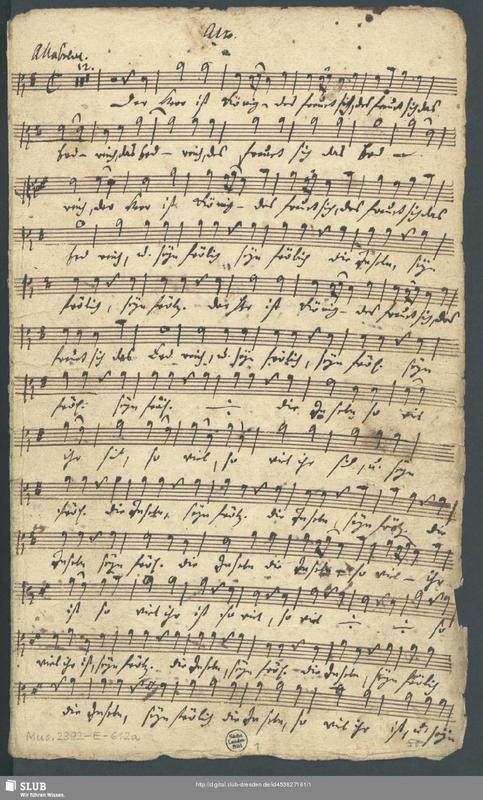 Alto.
12.
Der Herr ist König des freuet sich, des freuet sich, das
Erd - reich, das Erd - reich, des freuet sich das Erd -
reich, der Herr ist König - des freuet sich, des freuet sich das
Erd reich, u. seyn frölich seyn frölich die Inseln, seyn
frölich, seyn frölig. der Herr ist König - des freuet sich, das
freuet sich das Erd reich, u. seyn frölich, seyn fröl. seyn
fröl. seyn fröl. die Inseln so viel
ihr sind, so viel, so viel ihr sind, u. seyn
fröl. die Inseln, seyn frölig. die Inseln, seyn frölig. die
Inseln seyn fröl. die Inseln die Inseln so viel - ihr
ist so viel ihr ist so viel, so viel so
viel ihr ist, seyn frölig. die Inseln, seyn fröl. die Inseln, seyn frölich
die Inseln, seyn frölich die Inseln, so viel ihr ist, u. seyn
Mus. 2392-E-612a
1
Sächs.
Landes-
Bibl.
SLUB
Wir führen Wissen.
http://digital.slub-dresden.de/id453627161/1